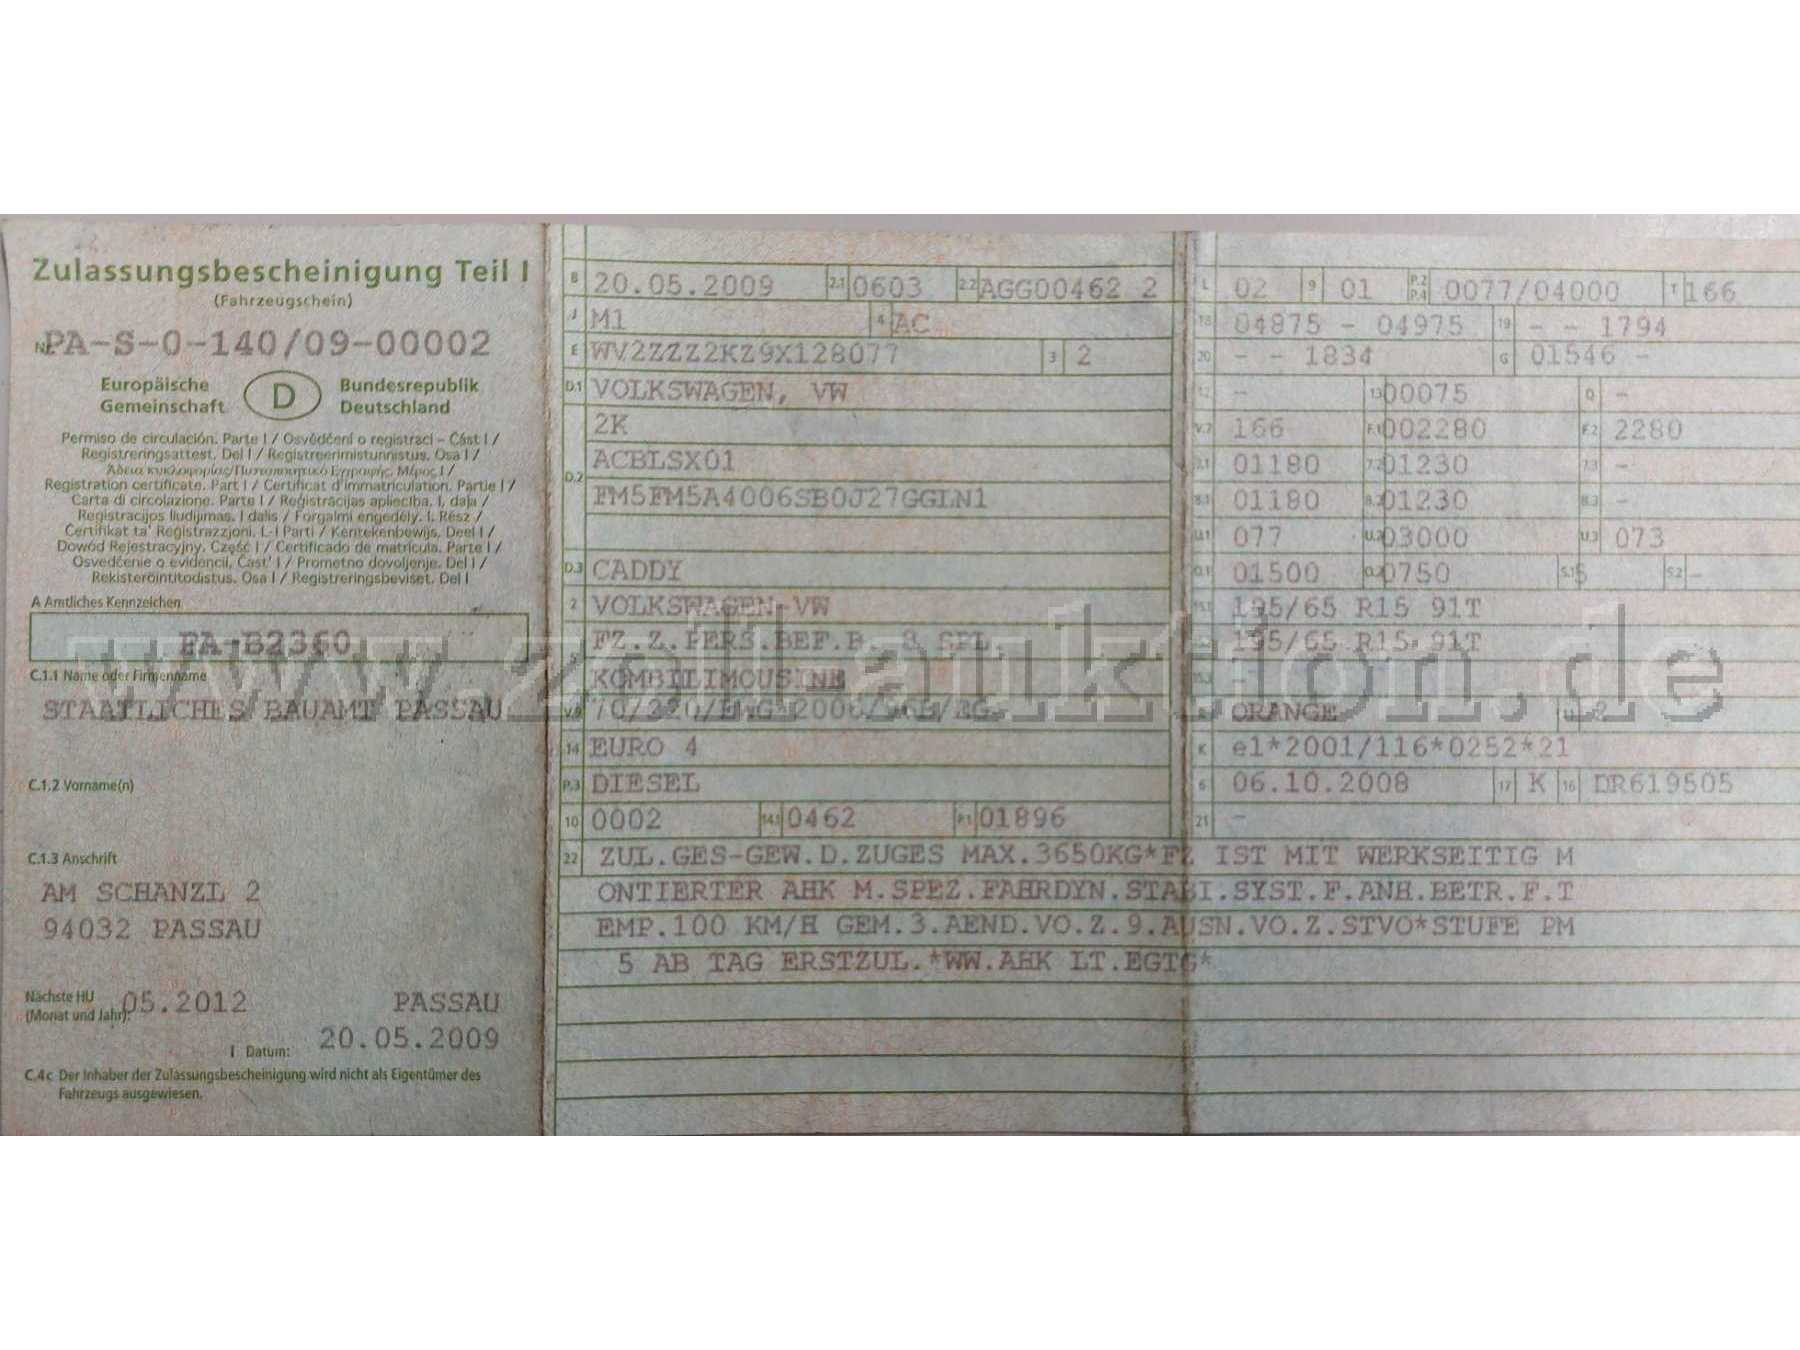 Zulassungsbescheinigung Teil I
(Fahrzeugschein)
Nr. PA-S-0-140/09-00002
Europäische Gemeinschaft
D
Bundesrepublik Deutschland
Permiso de circulación. Parte I / Osvědčení o registraci – Část I /
Registreringsattest. Del I / Registreerimistunnistus. Osa I /
Άδεια κυκλοφορίας/Πιστοποιητικό Εγγραφής. Μέρος I /
Registration certificate. Part I / Certificat d'immatriculation. Partie I /
Carta di circolazione. Parte I / Reģistrācijas apliecība. I. daļa /
Registracijos liudijimas. I dalis / Forgalmi engedély. I. Rész /
Ċertifikat ta' Reġistrazzjoni. L-I Parti / Kentekenbewijs. Deel I /
Dowód Rejestracyjny. Część I / Certificado de matrícula. Parte I /
Osvedčenie o evidencii. Časť I / Prometno dovoljenje. Del I /
Rekisteröintitodistus. Osa I / Registreringsbeviset. Del I
A Amtliches Kennzeichen
PA-B2360
C.1.1 Name oder Firmenname
STAATLICHES BAUAMT PASSAU
C.1.2 Vorname(n)
C.1.3 Anschrift
AM SCHANZL 2
94032 PASSAU
Nächste HU (Monat und Jahr): 05.2012 PASSAU
I Datum: 20.05.2009
C.4c Der Inhaber der Zulassungsbescheinigung wird nicht als Eigentümer des
Fahrzeugs ausgewiesen.
B 20.05.2009 2.1 0603 2.2 AGG00462 2
J M1 4 AC
E WV2ZZZ2KZ9X128077 3 2
D.1 VOLKSWAGEN, VW
2K
D.2 ACBLSX01
FM5FM5A4006SB0J27GGLN1
D.3 CADDY
2 VOLKSWAGEN-VW
5 FZ.Z.PERS.BEF.B. 8 SPL.
KOMBILIMOUSINE
V.9 70/220/EWG*2006/96B/EG
14 EURO 4
P.3 DIESEL
10 0002 14.1 0462 P.1 01896
L 02 9 01 P.2 P.4 0077/04000 T 166
18 04875 - 04975 19 - - 1794
20 - - 1834 G 01546 -
12 - 13 00075 Q -
V.7 166 F.1 002280 F.2 2280
7.1 01180 7.2 01230 7.3 -
8.1 01180 8.2 01230 8.3 -
U.1 077 U.2 03000 U.3 073
O.1 01500 O.2 0750 S.1 5 S.2 -
15.1 195/65 R15 91T
195/65 R15 91T
15.3 -
R ORANGE 11 2
K e1*2001/116*0252*21
6 06.10.2008 17 K 16 DR619505
21 -
22 ZUL.GES-GEW.D.ZUGES MAX.3650KG*FZ IST MIT WERKSEITIG M
ONTIERTER AHK M.SPEZ.FAHRDYN.STABI.SYST.F.ANH.BETR.F.T
EMP.100 KM/H GEM.3.AEND.VO.Z.9.AUSN.VO.Z.STVO*STUFE PM
5 AB TAG ERSTZUL.*WW.AHK LT.EGTG*
www.zoll-auktion.de